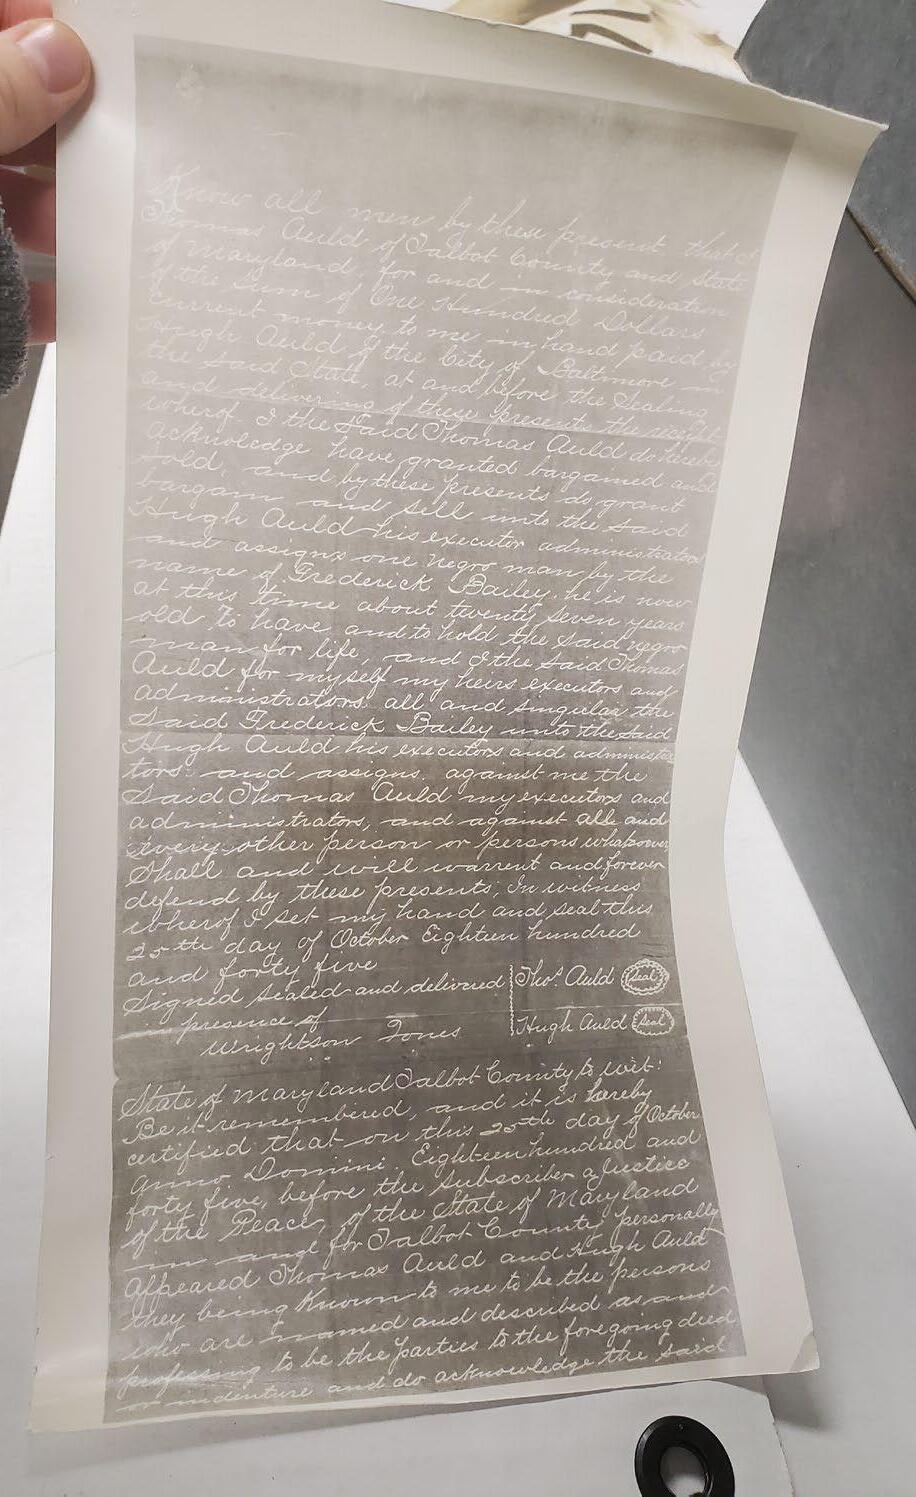 Know all men by these present that I
Thomas Auld of Talbot County and State
of Maryland for and in consideration
of the Sum of One Hundred Dollars
current money to me in hand paid by
Hugh Auld of the City of Baltimore in
the said State, at and before the Sealing
and delivering of these presents the receipt
wherof I the Said Thomas Auld do hereby
acknowledge have granted bargained and
sold, and by these presents do grant
bargain and sell unto the said
Hugh Auld his executor administrators
and assigns one negro man by the
name of Frederick Bailey, he is now
at this time about twenty seven years
old, To have and to hold the said negro
man for life, and I the said Thomas
Auld for myself my heirs executors and
administrators. all and singular the
said Frederick Bailey unto the said
Hugh Auld his executors and administra
tors: and assigns. against me the
Said Thomas Auld my executors and
administrators, and against all and
every other person or persons whatsoever
Shall and will warrent and forever
defend by these presents; In witness
wherof I set my hand and seal this
25th day of October Eighteen hundred
and forty five
Signed sealed and delivered Thos. Auld Seal
presence of Hugh Auld Seal
Wrightson Jones
State of Maryland Talbot County to wit:
Be it remembered, and it is hereby
certified that on this 25th day of October
anno Domini, Eighteen hundred and
forty five, before the Subscriber a Justice
of the Peace, of the State of Maryland
in and for Talbot County personally
appeared Thomas Auld and Hugh Auld
they being Known to me to be the persons
who are named and described as and
professing to be the Parties to the foregoing deed
or indenture and do acknowledge the said